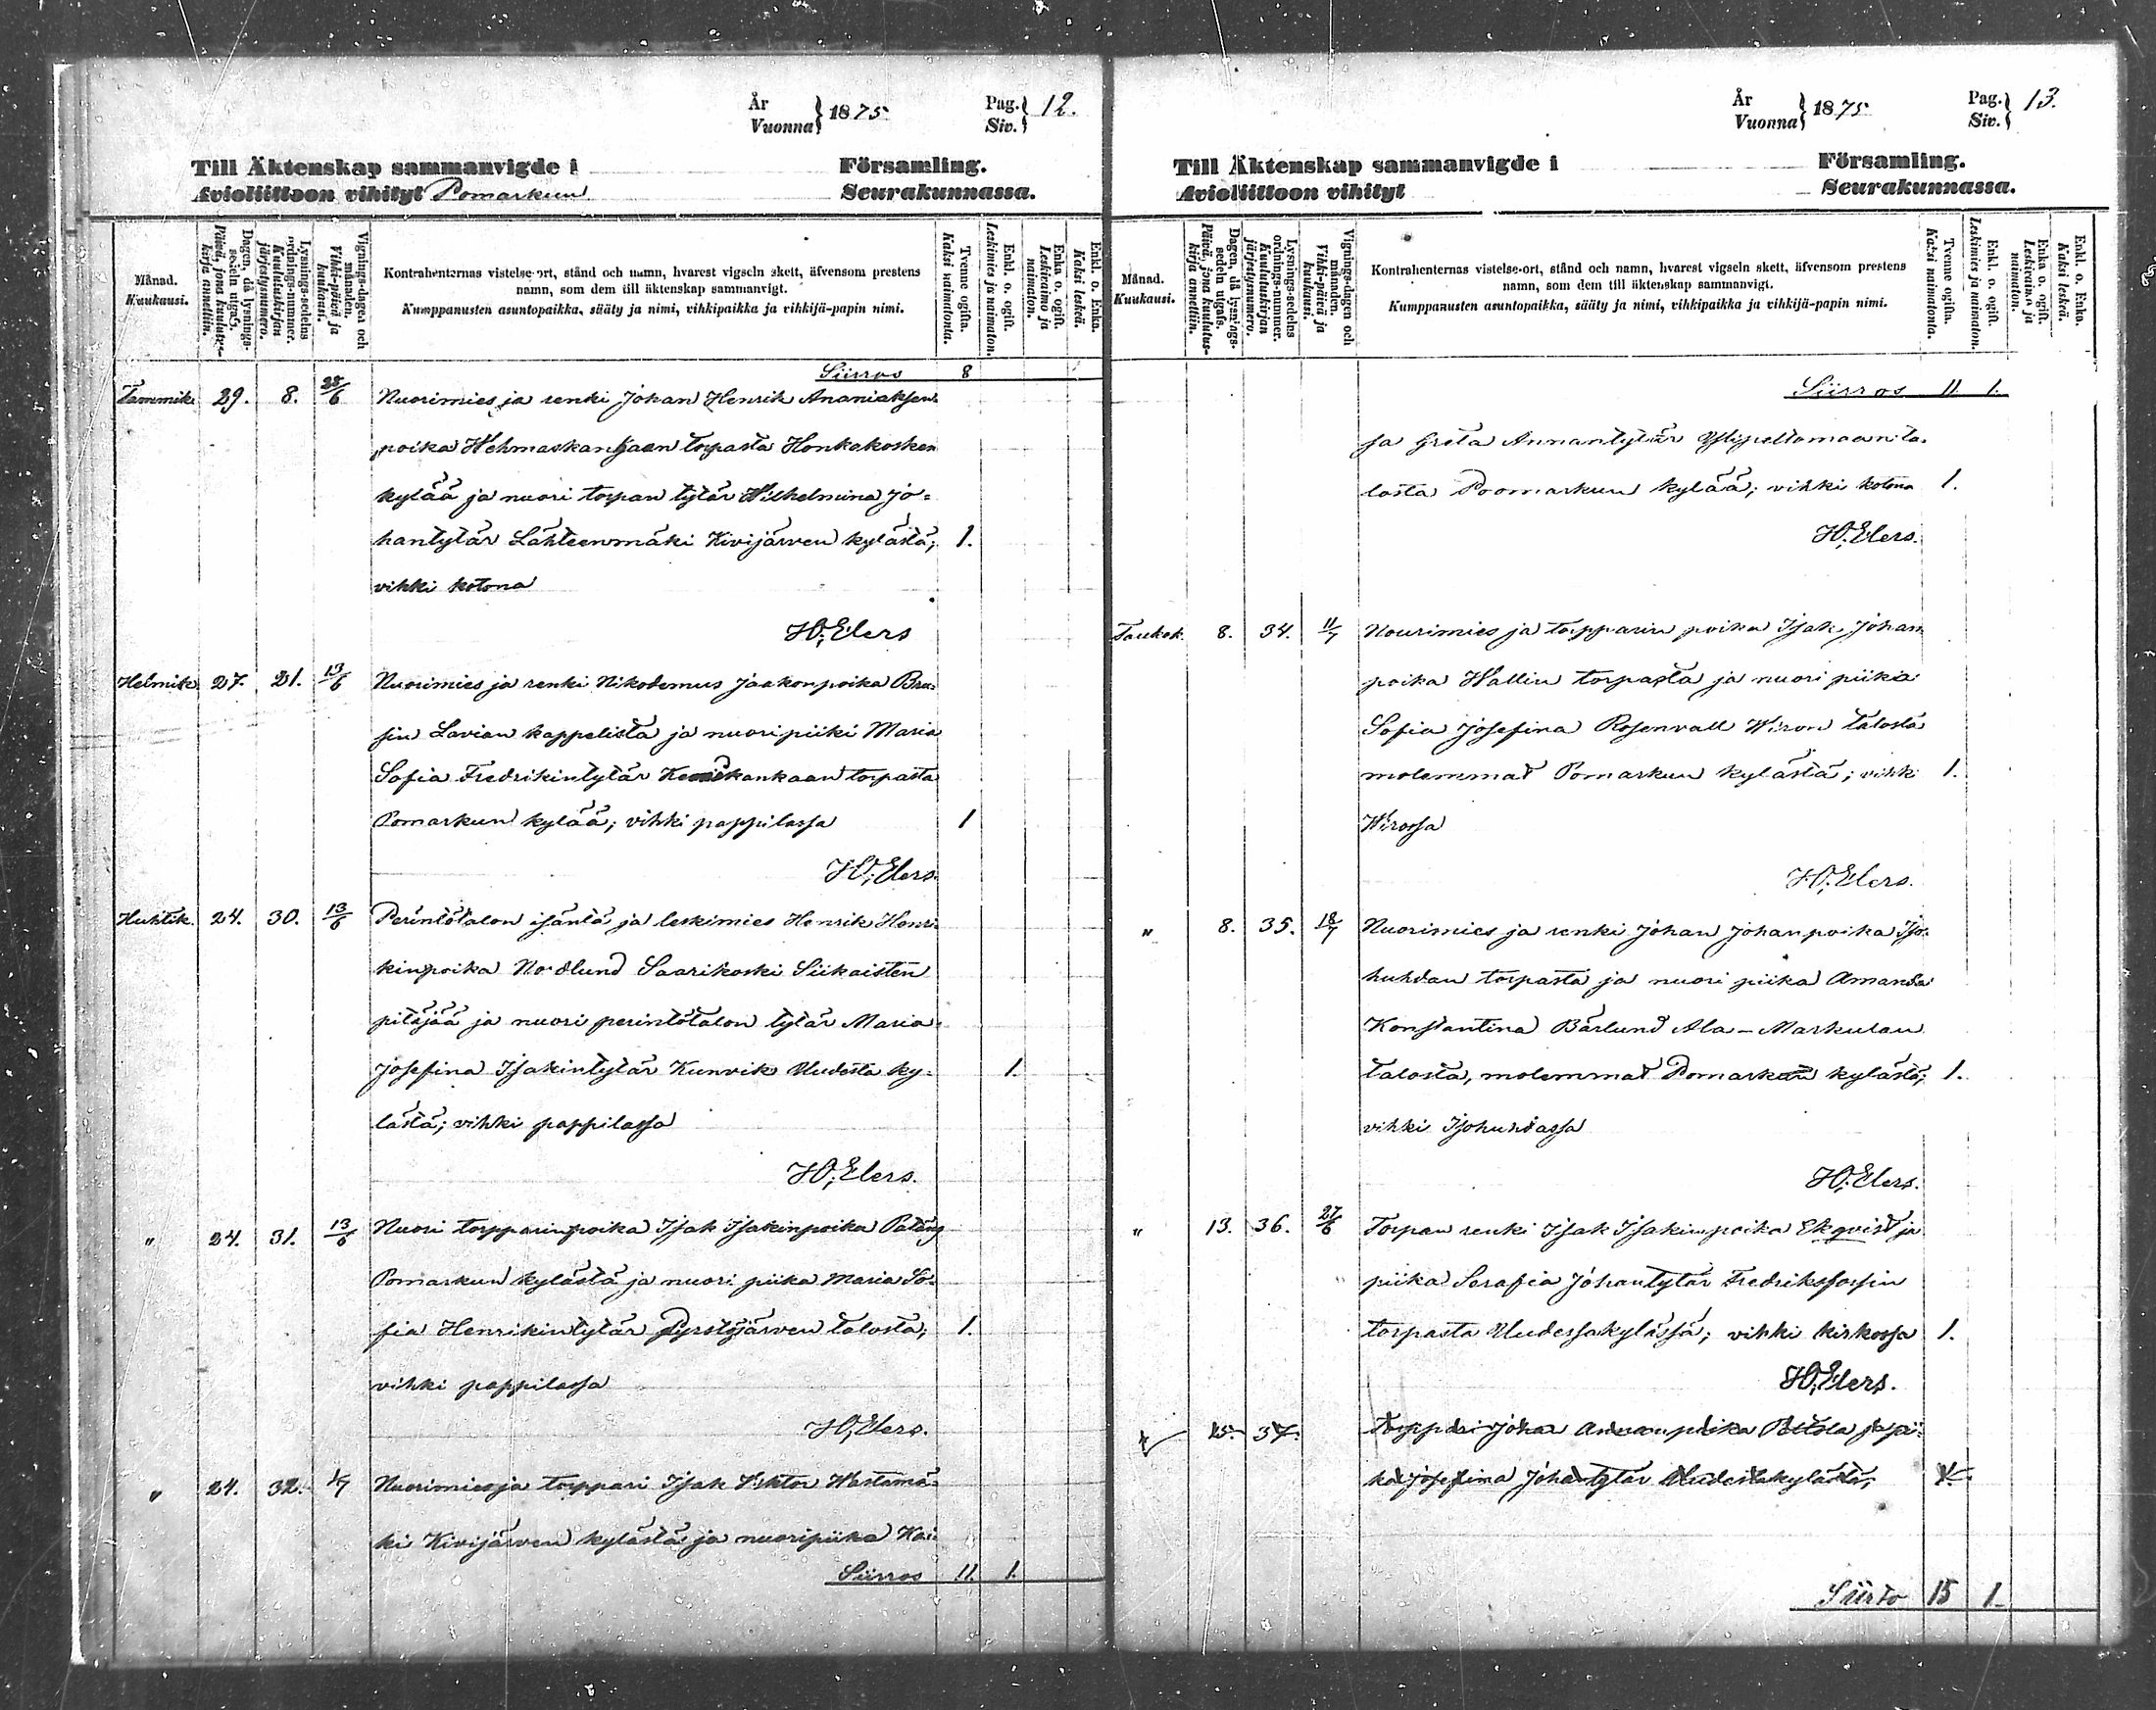 År
Vuonna } 1875
Pag.
Siv. } 12.
Till Äktenskap sammanvigde i Församling.
Avioliittoon vihityt Pomarkun Seurakunnassa.
Månad.
Kuukausi.
Dagen, då lysnings-sedeln utgafs.
Päivä, jona kuulutus-kirja annettiin.
Lysnings-sedelns ordnings-nummer.
Kuulutuskirjan järjestysnumero.
Vignings-dagen och månaden.
Vihki-päivä ja kuukausi.
Kontrahenternas vistelse-ort, stånd och namn, hvarest vigseln skett, äfvensom prestens
namn, som dem till äktenskap sammanvigt.
Kumppanusten asuntopaikka, sääty ja nimi, vihkipaikka ja vihkijä-papin nimi.
Tvenne ogifta.
Kaksi naimatonta.
Enkl. o. ogift.
Leskimies ja naimaton.
Enka o. ogift.
Leskivaimo ja naimaton.
Enkl. o. Enka.
Kaksi leskeä.
Siirros 8
Tammik. 29. 8. 28/6 Nuorimies ja renki Johan Henrik Ananiaksen
poika Hehmaskankaan torpasta Honkakosken
kylää ja nuori torpan tytär Wilhelmina Jo=
hantytär Lähteenmäki Kivijärven kylästä; 1.
vihki kotona
H. Elers
Helmik. 27. 21. 13/6 Nuorimies ja renki Nikodemus Jaakonpoika Bra=
sin Lavian kappelista ja nuori piiki Maria
Sofia Fredrikintytär torpasta
Pomarkun kylää; vihki pappilassa 1
H. Elers.
Huhtik. 24. 30. 13/6 Perintötalon isäntä ja leskimies Henrik Henri=
kinpoika Nordlund Saarikoski Siikaisten
pitäjää ja nuori perintötalon tytär Maria
Josefina Isakintytär Kunvik Uudesta ky= 1.
lästä; vihki pappilassa
H. Elers.
" 24. 31. 13/6 Nuori torpparinpoika Isak Isakinpoika
Pomarkun kylästä ja nuori piika Maria So=
fia Henrikintytär Pyrstöjärven talosta; 1.
vihki pappilassa
H. Elers.
" 24. 32. 4/7 Nuorimies ja torppari Isak Viktor Wästämä=
ki Kivijärven kylästä ja nuoripiika Kai=
Siirros 11. 1.
År
Vuonna } 1875
Pag.
Siv. } 13.
Till Äktenskap sammanvigde i Församling.
Avioliittoon vihityt Seurakunnassa.
Månad.
Kuukausi.
Dagen, då lysnings-sedeln utgafs.
Päivä, jona kuulutus-kirja annettiin.
Lysnings-sedelns ordnings-nummer.
Kuulutuskirjan järjestysnumero.
Vignings-dagen och månaden.
Vihki-päivä ja kuukausi.
Kontrahenternas vistelse-ort, stånd och namn, hvarest vigseln skett, äfvensom prestens
namn, som dem till äktenskap sammanvigt.
Kumppanusten asuntopaikka, sääty ja nimi, vihkipaikka ja vihkijä-papin nimi.
Tvenne ogifta.
Kaksi naimatonta.
Enkl. o. ogift.
Leskimies ja naimaton.
Enka o. ogift.
Leskivaimo ja naimaton.
Enkl. o. Enka.
Kaksi leskeä.
Siirros 11. 1.
sa Greta Annantytär Ylipeltomaan ta=
losta Poomarkun kylää; vihki kotona 1.
H. Elers.
Toukok. 8. 34. 11/7 Nourimies ja torpparin poika Isak Johan
poika Hallin torpasta ja nuori piika
Sofia Josefina Rosenvall Wiron talosta
molemmat Pomarkun kylästä; vihki 1.
Wirossa
H. Elers.
" 8. 35. 18/7 Nuorimies ja renki Johan Johanpoika Iso=
huhdan torpasta ja nuori piika Amanda
Konstantina Bärlund Ala-Markulan
talosta, molemmat Pomarkun kylästä; 1.
vihki Isohuhdassa
H. Elers.
" 13. 36. 27/6 Torpan renki Isak Isakinpoika Ekqvist ja
piika Serafia Johantytär Fredrikssonin
torpasta Uudessakylässä; vihki kirkossa 1.
H. Elers.
15. 37. Torppari Johan Adamnpoika ja pii=
ka Josefina Johantytär Uudestakylästä; 1.
Siirto 15 1